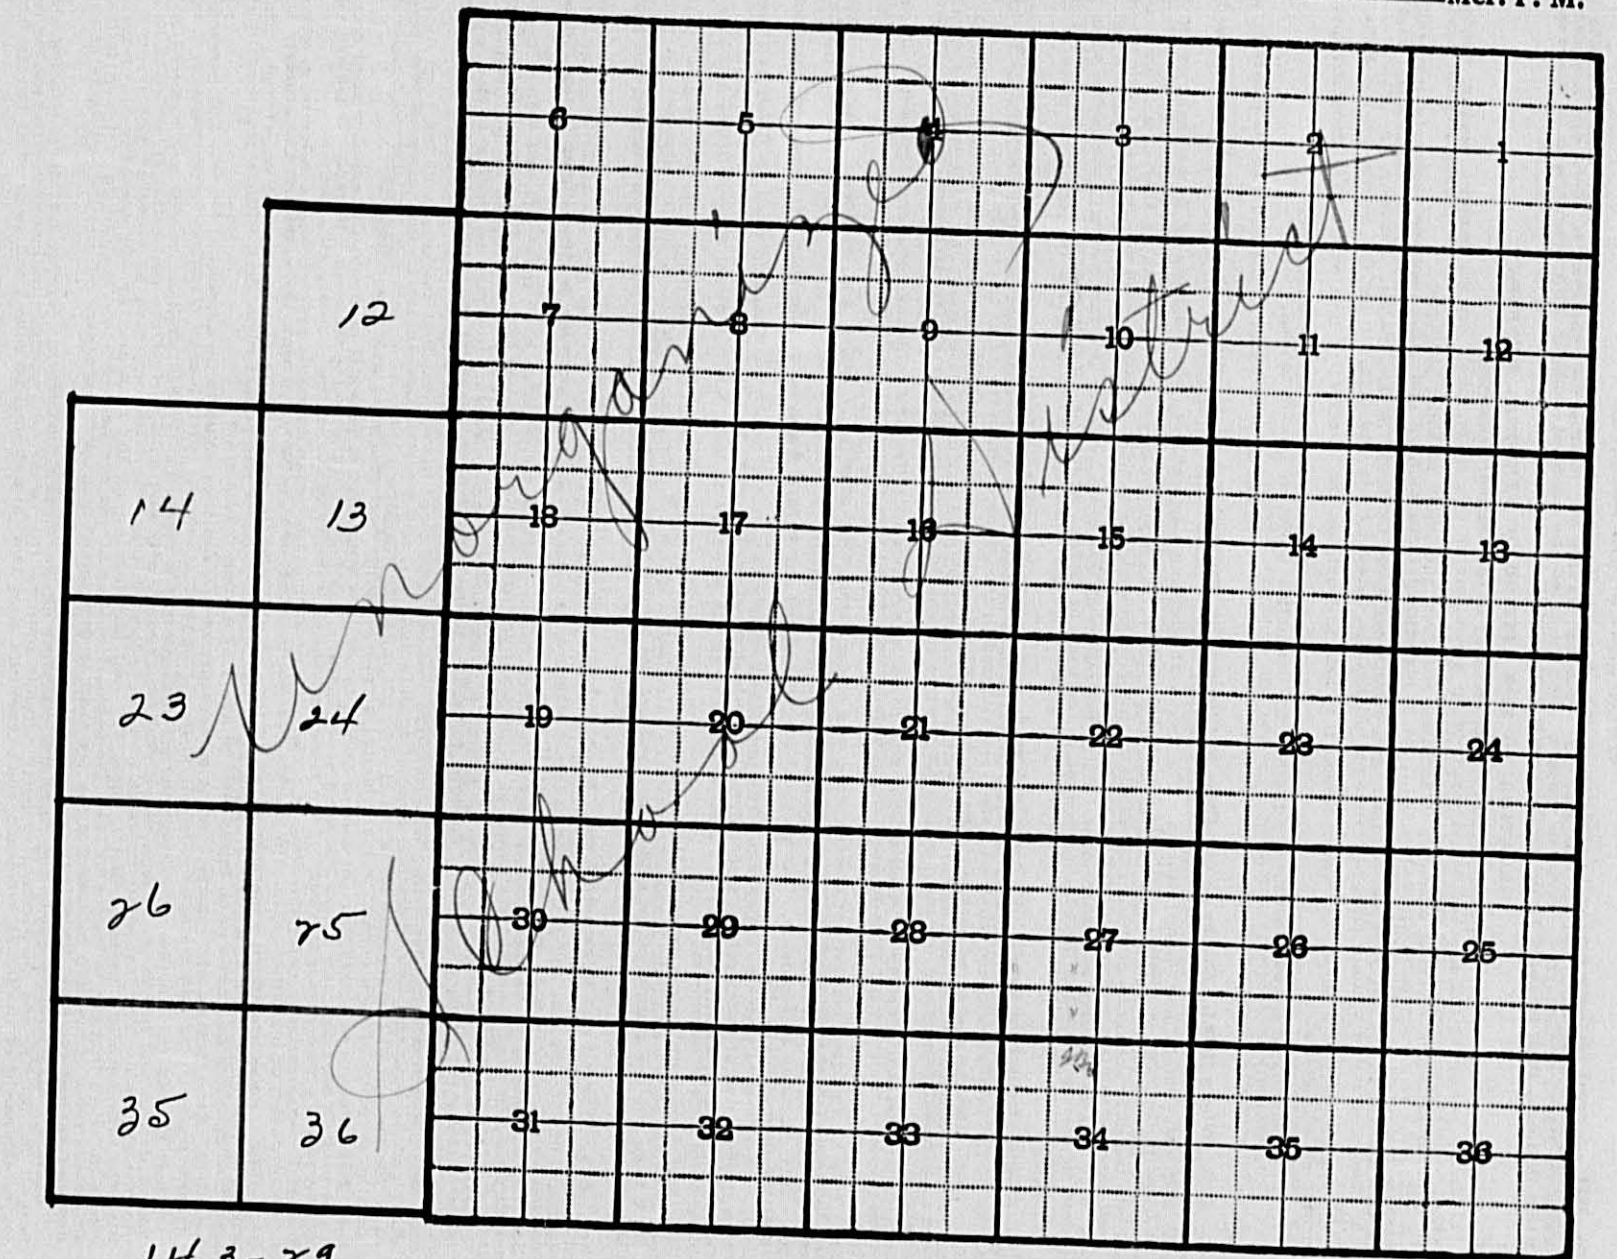 Mer. P. M.
6 5 4 3 2 1
12 7 8 9 10 11 12
14 13 18 17 16 15 14 13
23 24 19 20 21 22 23 24
26 25 30 29 28 27 26 25
35 36 31 32 33 34 35 36
Unorganized
School District
143-29